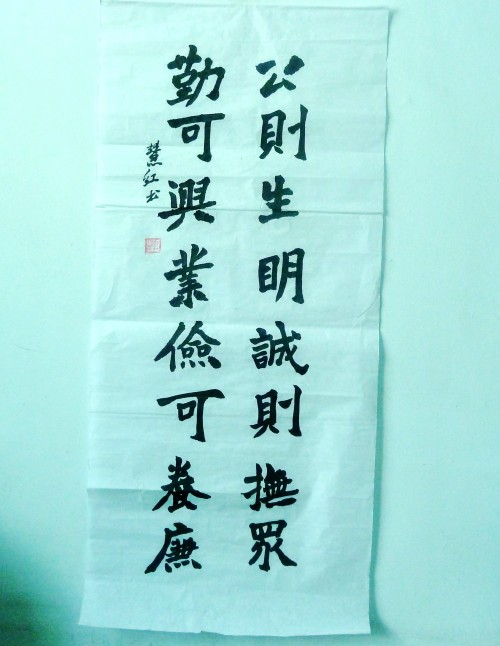 公則生明誠則撫眾
勤可興業儉可養廉
慧紅书